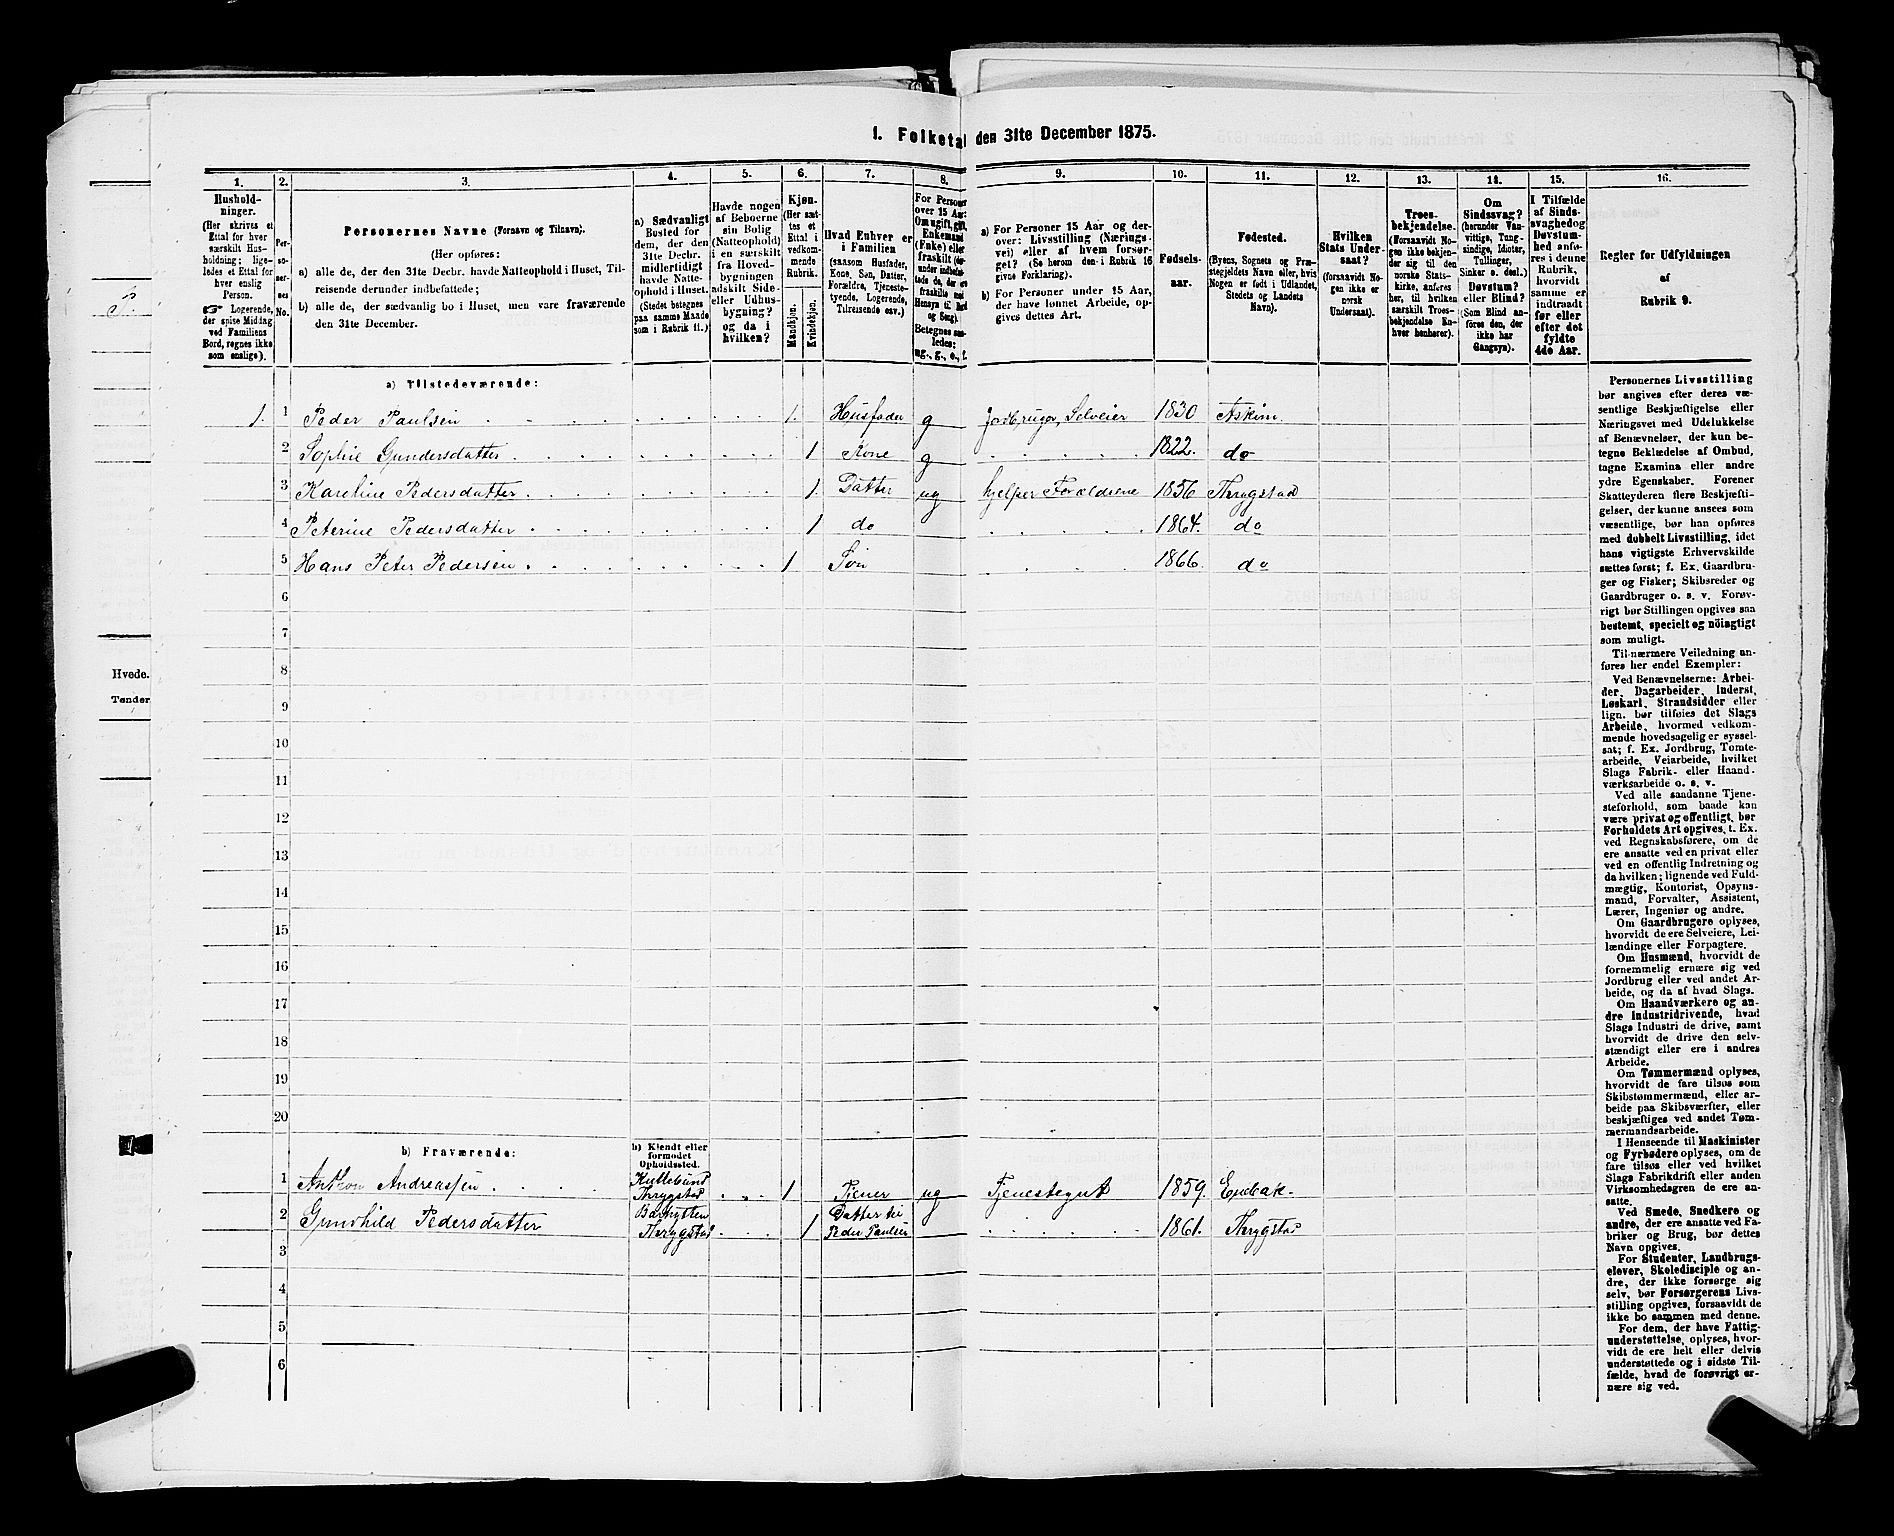 1. Folketal den 31te December 1875.
1. 2. 3. 4. 5. 6. 7. 8. 9. 10. 11. 12. 13. 14. 15. 16.
Husholdninger.
(Her skrives et
Ettal for hver
særskilt Husholdning; ligeledes
et Ettal for
hver enslig
Person.
☞ Logerende,
der spise Middag
ved Familiens
Bord, regnes ikke
som enslige).
Personernes No.
Personernes Navne (Fornavn og Tilnavn).
(Her opføres:
a) alle de, der den 31te Decbr. havde Natteophold i Huset, Tilreisende
derunder indbefattede;
b) alle de, der sædvanlig bo i Huset, men vare fraværende
den 31te December.
a) Sædvanligt
Bosted for
dem, der den
31te Decbr.
midlertidigt
havde Natteophold
i Huset.
(Stedet betegnes
paa samme Maade
som i Rubrik 11.)
Havde nogen
af Beboerne
sin Bolig
(Natteophold)
i en særskilt
fra Hovedbygningen
adskilt Side-
eller Udhusbygning?
og da i
hvilken?
Kjøn.
(Her sættes
et
Ettal i
vedkommende
Rubrik.
Mandkjøn.
Kvindekjøn.
Hvad Enhver er
i Familien
(saasom Husfader,
Kone, Søn, Datter,
Forældre, Tjenestetyende,
Logerende,
Tilreisende osv.)
For Personer
over 15 Aar:
Om ugift, gift,
Enkemand
(Enke) eller
fraskilt
Betegnes saaledes:
ug., g., e., f.
a) For Personer 15 Aar og derover:
Livsstilling (Næringsvei)
eller af hvem forsørget?
(Se herom den i Rubrik 16
givne Forklaring).
b) For Personer under 15 Aar,
der have lønnet Arbeide, opgives
dettes Art.
Fødselsaar.
Fødested.
(Byens, Sognets og Præstegjeldets
Navn eller, hvis
Nogen er født i Udlandet,
Stedets og Landets
Navn).
Hvilken
Stats Undersaat?
(forsaavidt Nogen
ikke er
norsk
Undersaat).
Troesbekjendelse.
(Forsaavidt Nogen
ikke bekjender
sig til den
norske Statskirke,
anføres
her, til hvilken
særskilt Troesbekjendelse
Enhver
henhører).
Om
Sindssvag?
(herunder Vanvittige,
Tungsindige,
Idioter,
Tullinger,
Sinker o. desl.)
Døvstum?
eller Blind?
(Som Blind anføres
den, der
ikke har
Gangsyn).
I Tilfælde
af Sindssvaghed
og
Døvstumhed
anføres
i denne
Rubrik,
hvorvidt
samme er
indtraadt
før eller
efter det
fyldte
4de Aar.
Regler for Udfyldningen
af
Rubrik 9.
a) Tilstedeværende:
1. 1 Peder Paulsen 1. Husfader g Jordbruger, Selveier 1830 Askim
2 Sophie Gundersdatter 1 Kone g 1822. do
3 Kareline Pedersdatter 1. Datter ug hjelper Forældrene 1856 Thrygstad
4 Peterine Pedersdatter 1 do 1864. do
5 Hans Peter Pedersen 1 Søn 1866. do
6
7
8
9
10
11
12
13
14
15
16
17
18
19
20
b) Fraværende:
b) Kjendt eller
formodet
Opholdssted.
1 Anthon Andreassen Thrygstad 1 Tiener ug Tjenestegut 1859. Enebak
2 Gunhild Pedersdatter Thrygstad 1 Datter til Peder Paulsen 1861. Thrygstad
3
4
5
6
Personernes Livsstilling
bør angives efter deres væsentlige
Beskjæftigelse eller
Næringsvei med Udelukkelse
af Benævnelser, der kun betegne
Beklædelse af Ombud,
tagne Examina eller andre
ydre Egenskaber. Forener
Skatteyderen flere Beskjæftigelser,
der kunne ansees som
væsentlige, bør han opføres
med dobbelt Livsstilling, idet
hans vigtigste Erhvervskilde
sættes først; f. Ex. Gaardbruger
og Fisker; Skibsreder og
Gaardbruger o. s. v. Forøvrigt
bør Stillingen opgives saa
bestemt, specielt og nöiagtigt
som muligt.
Til nærmere Veiledning anføres
her endel Exempler:
Ved Benævnelserne: Arbeider,
Dagarbeider, Inderst,
Løskarl, Strandsidder eller
lign. bør tilføies det Slags
Arbeide, hvormed vedkommende
hovedsagelig er sysselsat;
f. Ex. Jordbrug, Tomtearbeide,
Veiarbeide, hvilket
Slags Fabrik- eller Haandværksarbeide
o. s. v.
Ved alle saadanne Tjenesteforhold,
som baade kan
være privat og offentligt, bør
Forholdets Art opgives, t. Ex.
ved Regnskabsførere, om de
ere ansatte ved en privat eller
ved en offentlig Indretning og
da hvilken; lignende ved Fuldmægtig,
Kontorist, Opsynsmand,
Forvalter, Assistent,
Lærer, Ingeniør og andre.
Om Gaardbrugere oplyses,
hvorvidt de ere Selveiere, Leilændinge
eller Forpagtere.
Om Husmænd, hvorvidt de
fornemmelig ernære sig ved
Jordbrug eller ved andet Arbeide,
og da af hvad Slags.
Om Haandværkere og andre
Industridrivende, hvad
Slags Industri de drive, samt
hvorvidt de drive den selvstændigt
eller ere i andres
Arbeide.
Om Tømmermænd oplyses,
hvorvidt de fare tilsøs som
Skibstømmermænd, eller arbeide
paa Skibsværfter, eller
beskjæftiges ved andet Tømmermandsarbeide.
I Henseende til Maskinister
og Fyrbødere oplyses, om de
fare tilsøs eller ved hvilket
Slags Fabrikdrift eller anden
Virksomhedsgren de ere ansatte.
Ved Smede, Snedkere og
andre, der ere ansatte ved Fabriker
og Brug, bør dettes
Navn opgives.
For Studenter, Landbrugselever,
Skoledisciple og andre,
der ikke forsørge sig
selv, bør Forsørgerens Livsstilling
opgives, forsaavidt de
ikke bo sammen med denne.
For dem, der have Fattigunderstøttelse,
oplyses, hvorvidt
de ere helt eller delvis
understøttede og i sidste Tilfælde,
hvad de forøvrigt ernære
sig ved.
Hvede.
Tønder